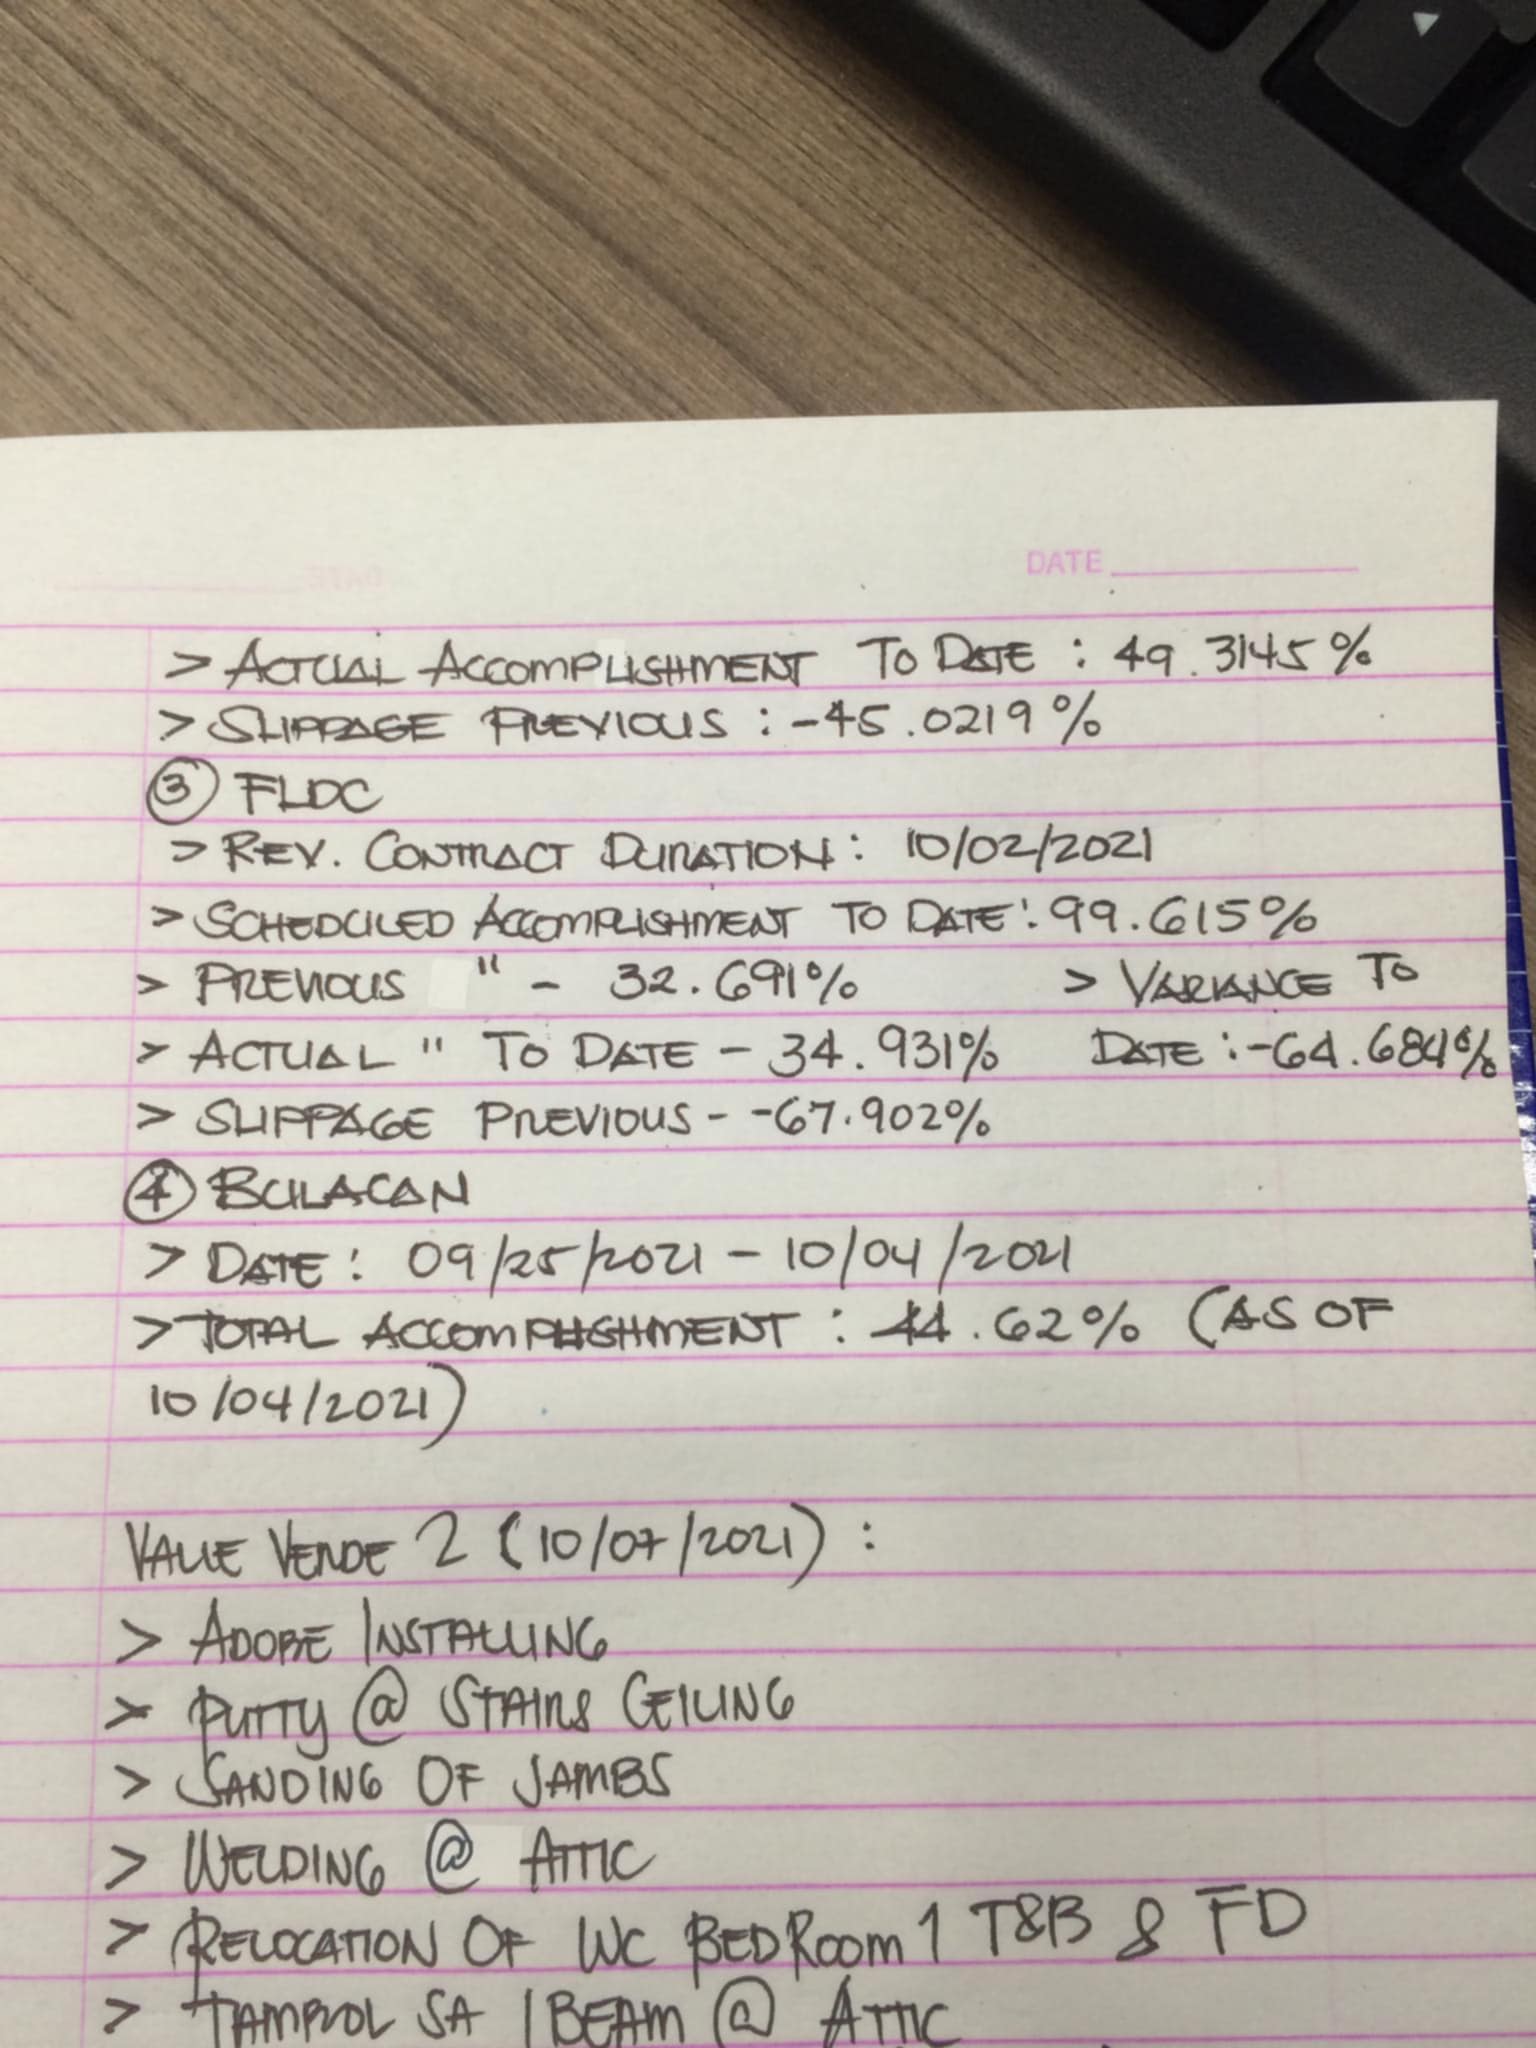 DATE
> ACTUAL ACCOMPLISHMENT TO DATE : 49.3145%
> SLIPPAGE PREVIOUS : -45.0219%
③ FLDC
> REV. CONTRACT DURATION : 10/02/2021
> SCHEDULED ACCOMPLISHMENT TO DATE : 99.615%
> PREVIOUS " - 32.691%
> VARIANCE TO
> ACTUAL " TO DATE - 34.931%
DATE : -64.684%
> SLIPPAGE PREVIOUS - -67.902%
④ BULACAN
> DATE : 09/25/2021 - 10/04/2021
> TOTAL ACCOMPLISHMENT : 44.62% (AS OF
10/04/2021)
VALLE VERDE 2 (10/07/2021) :
> ADOBE INSTALLING
> PUTTY @ STAIRS CEILING
> SANDING OF JAMBS
> WELDING @ ATTIC
> RELOCATION OF WC BEDROOM 1 T&B & FD
> TAMBOL SA I BEAM @ ATTIC